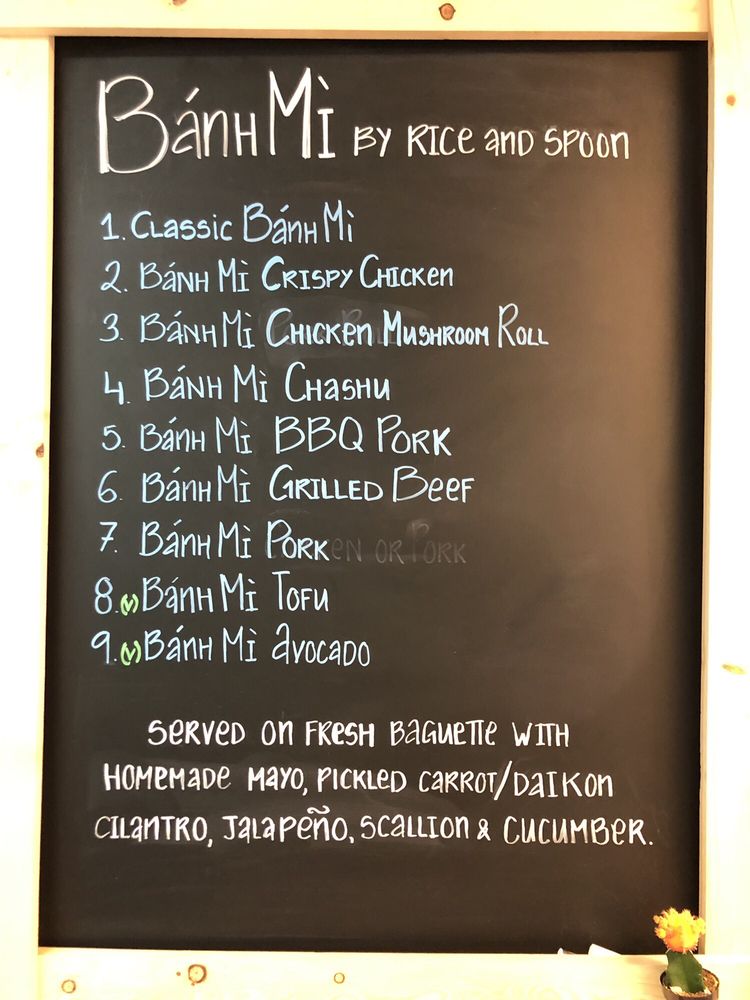 Bánh Mì by Rice and Spoon
1. Classic Bánh Mì
2. Bánh Mì Crispy Chicken
3. Bánh Mì Chicken Mushroom Roll
4. Bánh Mì Chashu
5. Bánh Mì BBQ Pork
6. Bánh Mì Grilled Beef
7. Bánh Mì Pork
8. (V) Bánh Mì Tofu
9. (V) Bánh Mì Avocado
Served on fresh baguette with
homemade mayo, pickled carrot/daikon
cilantro, jalapeño, scallion & cucumber.